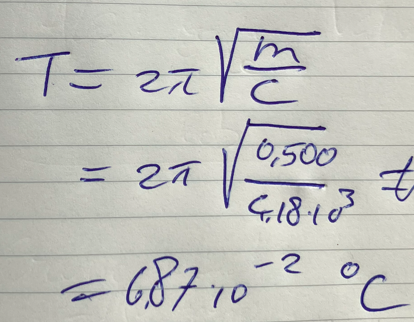 T = 2π √(m/C)
= 2π √(0,500/4,18·10³) t
= 6,87·10⁻² °C